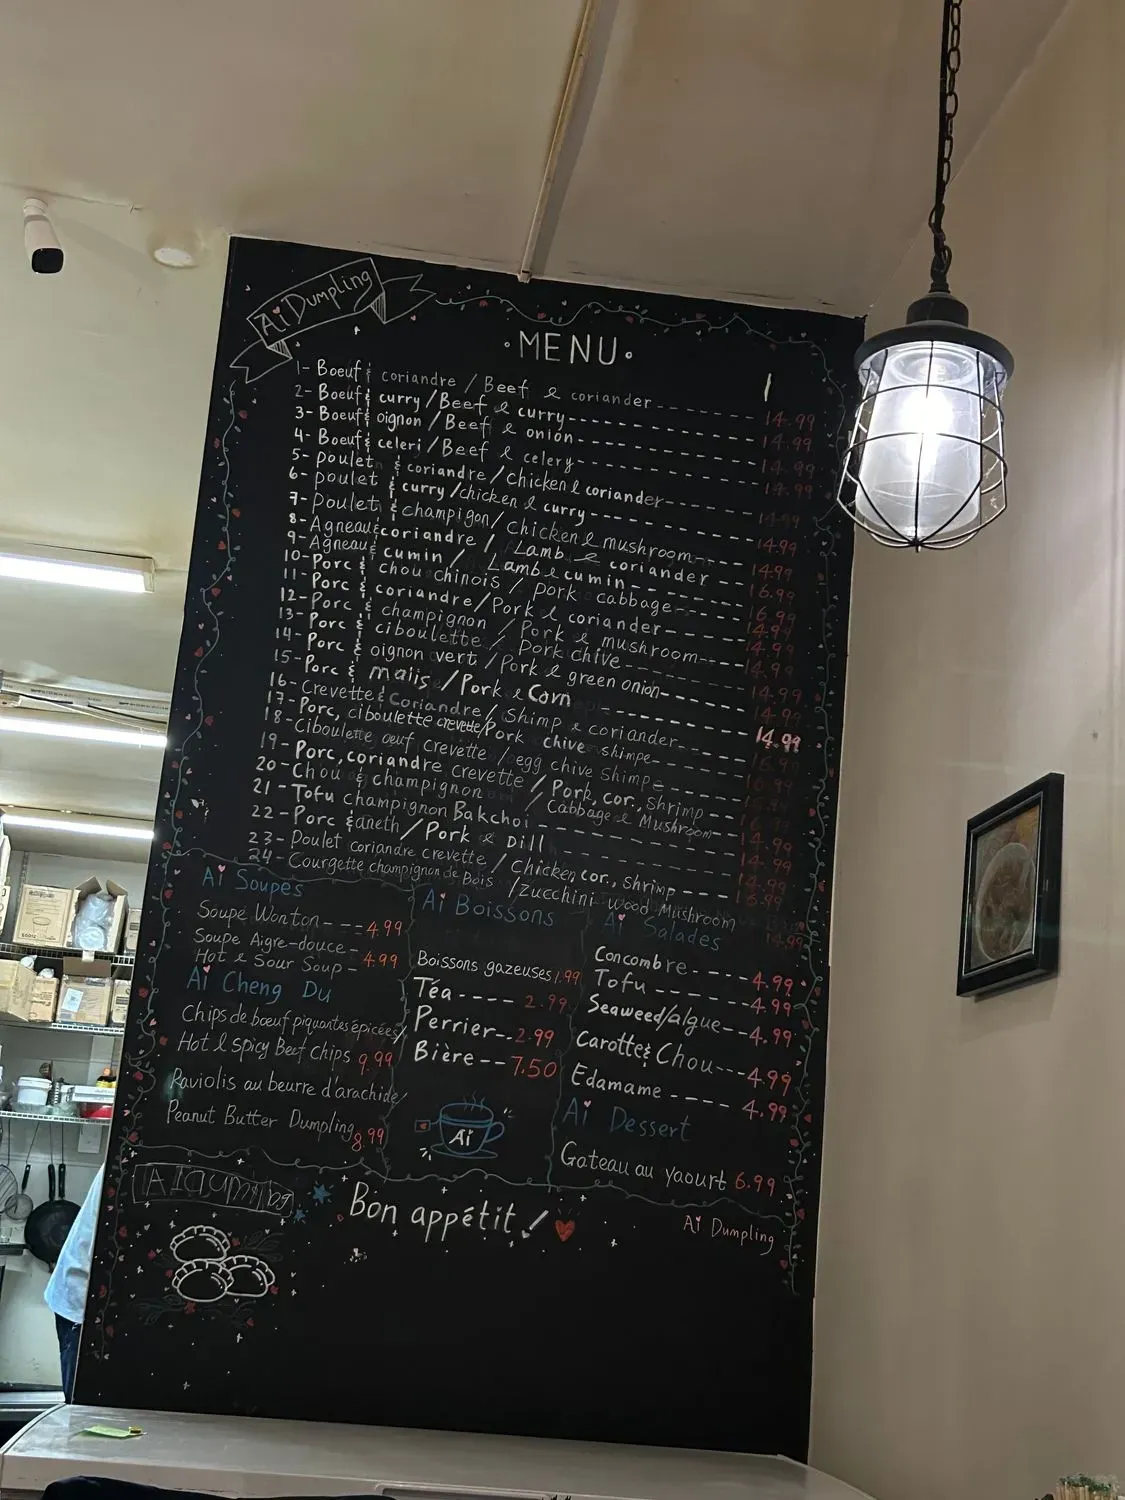 Ai Dumpling
·MENU·
1- Boeuf & coriandre / Beef & coriander 14.99
2- Boeuf & curry / Beef & curry 14.99
3- Boeuf & oignon / Beef & onion 14.99
4- Boeuf & celeri / Beef & celery 14.99
5- poulet & coriandre / Chicken & coriander 14.99
6- poulet & curry / chicken & curry 14.99
7- Poulet & champigon / Chicken & mushroom 14.99
8- Agneau & coriandre / Lamb & coriander 16.99
9- Agneau & cumin / Lamb & cumin 16.99
10- Porc & chou chinois / pork cabbage 14.99
11- Porc & coriandre / Pork & coriander 14.99
12- Porc & champignon / Pork & mushroom 14.99
13- Porc & ciboulette / Pork chive 14.99
14- Porc & oignon vert / Pork & green onion 14.99
15- Porc & maiis / Pork & Corn 14.99
16- Crevette & Coriandre / Shimp & coriander
17- Porc, ciboulette crevette / Pork chive shimpe
18- Ciboulette œuf crevette / egg chive shimpe
19- Porc, coriandre crevette / Pork, cor., shrimp
20- Chou & champignon / Cabbage & Mushroom 14.99
21- Tofu champignon Bakchoi 14.99
22- Porc & aneth / Pork & Dill 14.99
23- Poulet coriandre crevette / Chicken, cor., Shrimp
24- Courgette champignon de Bois / Zucchini wood Mushroom 14.99
Ai Soupes
Soupe Wonton --- 4.99
Soupe Aigre-douce -
Hot & Sour Soup - 4.99
Ai Cheng Du
Chips de bœuf piquantes épicées/
Hot & Spicy Beef Chips 9.99
Raviolis au beurre d'arachide/
Peanut Butter Dumpling 8.99
Ai Boissons
Boissons gazeuses 1.99
Téa ---- 2.99
Perrier -- 2.99
Bière -- 7.50
Ai
Ai Salades
Concombre ---- 4.99
Tofu ------ 4.99
Seaweed/algue -- 4.99
Carotte & Chou --- 4.99
Edamame ---- 4.99
Ai Dessert
Gateau au yaourt 6.99
AI Dumpling
Bon appétit !
Ai Dumpling